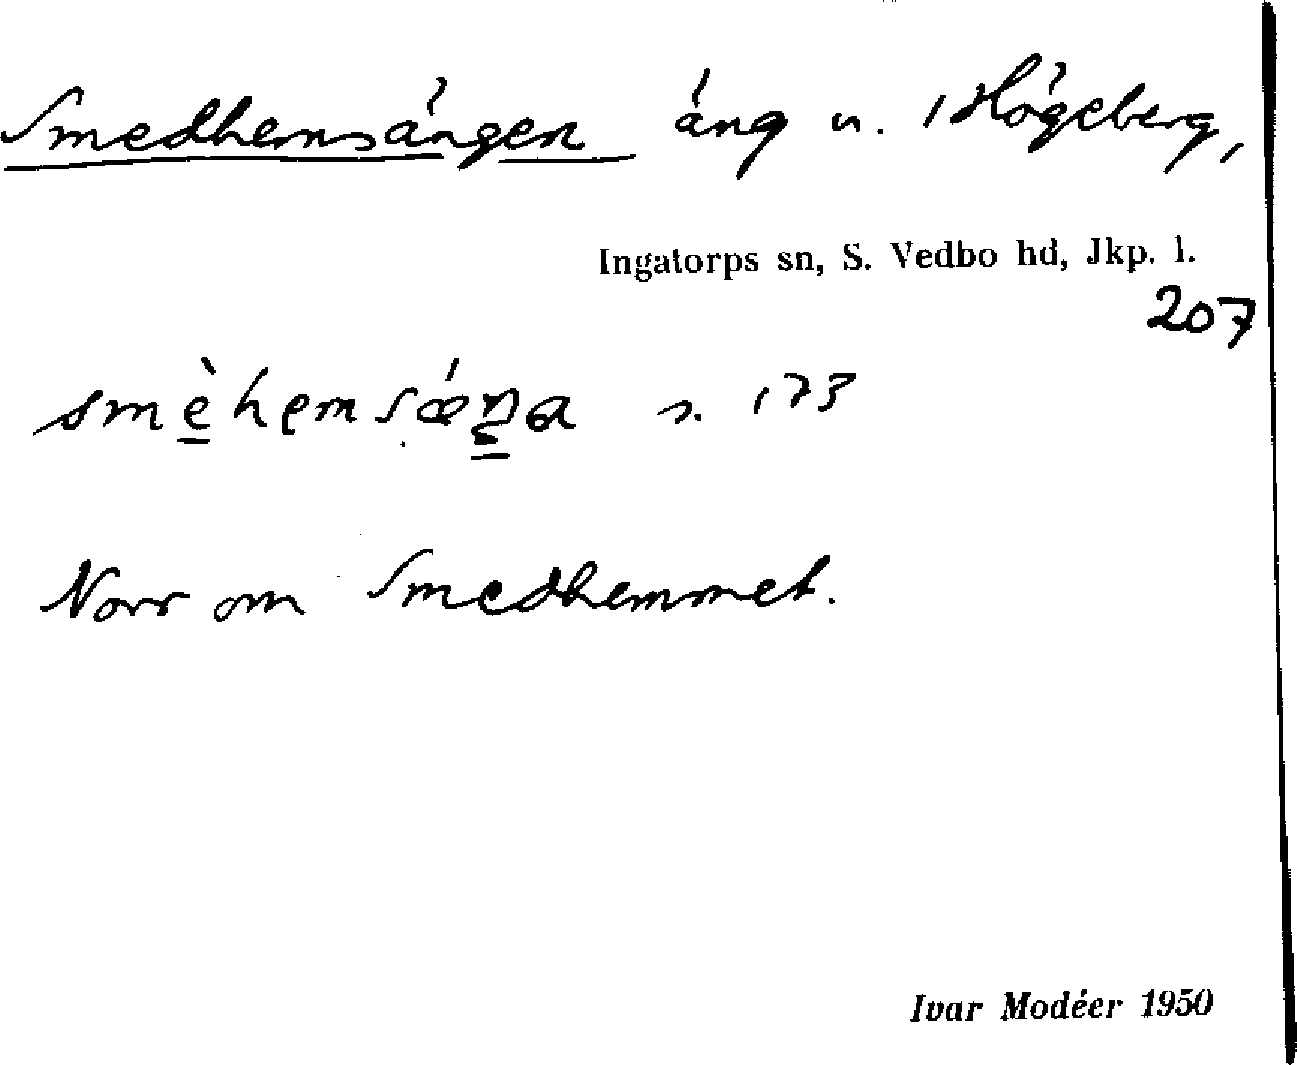 Smedhemsängen äng u. 1 Högeberg,
Ingatorps sn, S. Vedbo hd, Jkp. l.
207
s. 173
Norr om Smedhemmet.
Ivar Modéer 1950